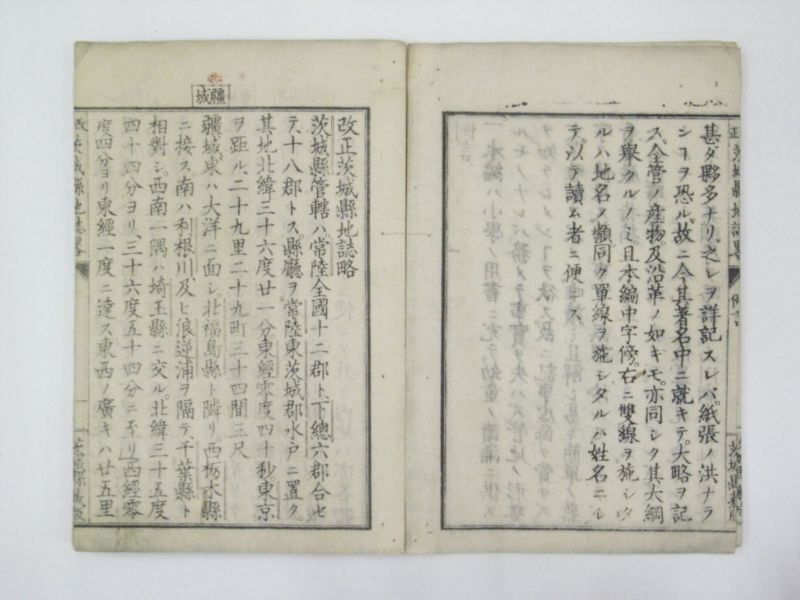 甚タ夥多ナリ、之レヲ詳記スレハ、紙張ノ洪ナラ
シコヲ恐ル、故ニ今其著名中ニ就キテ、大略ヲ記
ス、全管ノ産物及沿革ノ如キモ、亦同シク其大綱
ヲ舉クルノミ、且本編中字傍、右ニ雙線ヲ施シタ
ルハ地名ノ類同ク單線ヲ施シタルハ姓名ニシ
テ、以テ讀ム者ニ便ニス、
疆域
改正茨城縣地誌略
茨城縣管轄ハ、常陸全國十二郡ト、下總六郡合セ
テ、十八郡トス縣廳ヲ常陸東茨城郡水戸ニ置ク、
其地北緯三十六度廿一分東經零度四十秒東京
ヲ距ル、二十九里二十九町三十四間三尺
疆域東ハ大洋ニ面シ、北福島縣ト隣リ西栃木縣
ニ接ス南ハ利根川及ヒ浪逆浦ヲ隔テ、千葉縣ト
相對シ、西南一隅ハ埼玉縣ニ交ル、北緯三十五度
四十四分ヨリ、三十六度五十四分ニ至リ西經零
度四分ヨリ東經一度ニ達ス東西ノ廣キハ廿五里
改正茨城縣地誌略